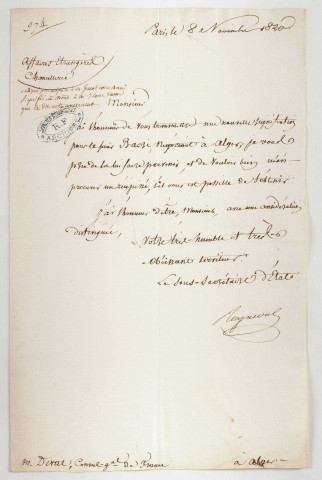 Paris le 8 Novembre 1820
Affaires Etrangères
Chancellerie
Monsieur
J'ai l'honneur de vous transmettre une nouvelle signification
pour le Juif Bacri, Négociant à Alger, je vous
prie de la lui faire parvenir, et de vouloir bien m'en
procurer un récépissé, s'il vous est possible de l'obtenir
J'ai l'honneur d'être, Monsieur, avec une considération
distinguée,
Votre très humble et très
obéissant serviteur
Le Sous-Secrétaire d'Etat
Rayneval
M. Deval, Consul gal de France à Alger